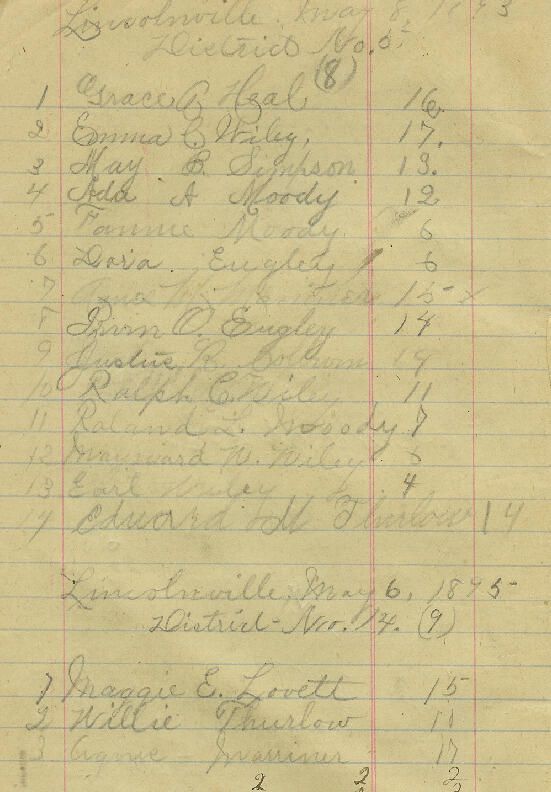 Lincolnville, May 8, 1893
District No. 5
(8)
1 Grace A Heal 16
2 Emma C. Wiley, 17.
3 May B Simpson 13.
4 Ada A Moody 12
5 Fannie Moody 6
6 Dora Eugley 6
7 15 x
8 O. Eugley 14
9 Justus R. 19
10 Ralph C. Wiley 11
11 Roland L. Moody 7
12 Maynard W. Wiley
13 Earl Wiley 4
14 Edward M Thurlow 14
Lincolnville, May 6, 1895
District No. 14. (9)
1 Maggie E. Lovett 15
2 Willie Thurlow 11
3 Mariner 17
2 2 2